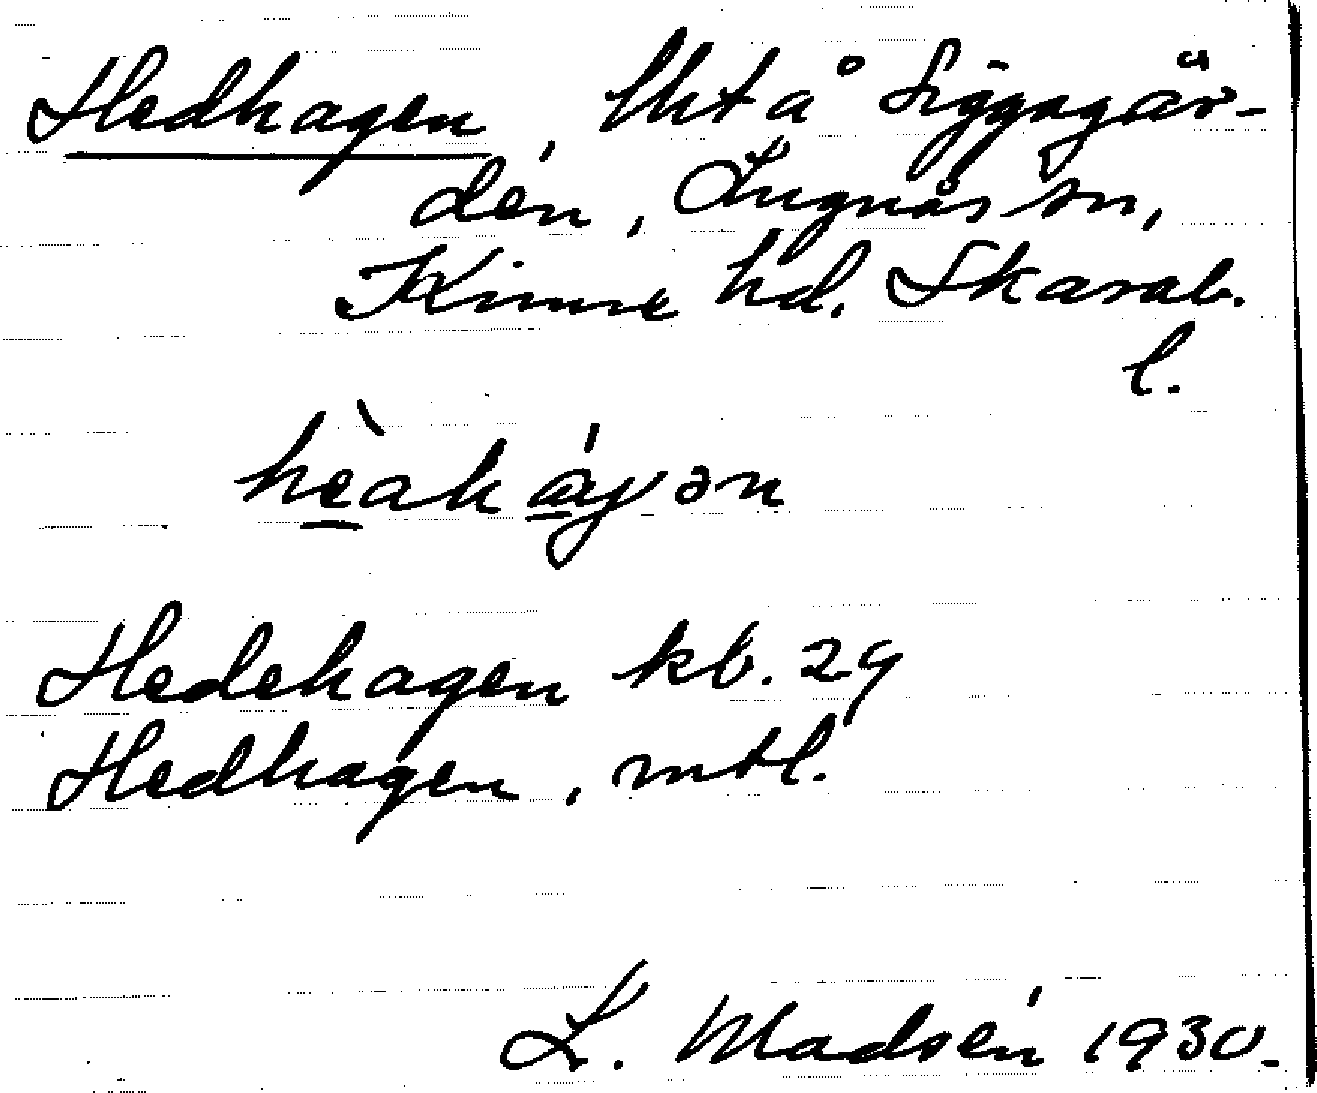 Hedhagen, lht å Siggagär-
den, Lugnås sn,
Kinne hd. Skarab.
l.
hèaháγən
Hedehagen kb. 29
Hedhagen, mtl.
L. Madsén 1930.